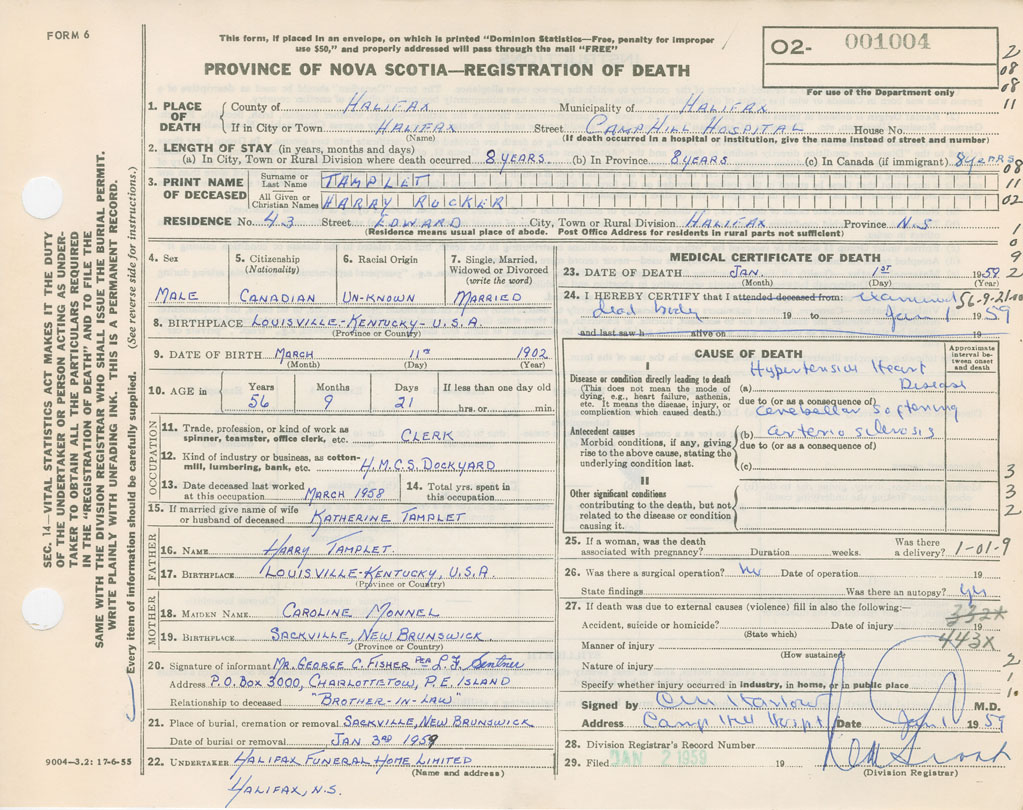 FORM 6
This form, if placed in an envelope, on which is printed "Dominion Statistics—Free, penalty for improper
use $50," and properly addressed will pass through the mail "FREE"
PROVINCE OF NOVA SCOTIA—REGISTRATION OF DEATH
02- 001004
For use of the Department only
2
08
08
11
SEC. 14—VITAL STATISTICS ACT MAKES IT THE DUTY
OF THE UNDERTAKER OR PERSON ACTING AS UNDER-
TAKER TO OBTAIN ALL THE PARTICULARS REQUIRED
IN THE "REGISTRATION OF DEATH" AND TO FILE THE
SAME WITH THE DIVISION REGISTRAR WHO SHALL ISSUE THE BURIAL PERMIT.
WRITE PLAINLY WITH UNFADING INK. THIS IS A PERMANENT RECORD.
Every item of information should be carefully supplied. (See reverse side for instructions.)
1. PLACE OF DEATH
County of HALIFAX Municipality of HALIFAX
If in City or Town HALIFAX Street CAMP HILL HOSPITAL House No.
(Name) (If death occurred in a hospital or institution, give the name instead of street and number)
2. LENGTH OF STAY (in years, months and days)
(a) In City, Town or Rural Division where death occurred 8 YEARS. (b) In Province 8 YEARS (c) In Canada (if immigrant) 8 YEARS
08
3. PRINT NAME OF DECEASED
Surname or Last Name TAMPLET
11
All Given or Christian Names HARRY RUCKER
02
RESIDENCE No. 43 Street EDWARD City, Town or Rural Division HALIFAX Province N.S
(Residence means usual place of abode. Post Office Address for residents in rural parts not sufficient)
1
0
9
2
4. Sex
MALE
5. Citizenship
(Nationality)
CANADIAN
6. Racial Origin
UN-KNOWN
7. Single, Married,
Widowed or Divorced
(write the word)
MARRIED
8. BIRTHPLACE LOUISVILLE-KENTUCKY-U.S.A.
(Province or Country)
9. DATE OF BIRTH MARCH 11th 1902
(Month) (Day) (Year)
10. AGE in
Years Months Days If less than one day old
56 9 21 hrs. or min.
OCCUPATION
11. Trade, profession, or kind of work as
spinner, teamster, office clerk, etc. CLERK
12. Kind of industry or business, as cotton-
mill, lumbering, bank, etc. H.M.C.S. DOCKYARD
13. Date deceased last worked
at this occupation MARCH 1958
14. Total yrs. spent in
this occupation
15. If married give name of wife
or husband of deceased KATHERINE TAMPLET
FATHER
16. NAME HARRY TAMPLET.
17. BIRTHPLACE LOUISVILLE-KENTUCKY, U.S.A.
(Province or Country)
MOTHER
18. MAIDEN NAME. CAROLINE MONNEL
19. BIRTHPLACE SACKVILLE, NEW BRUNSWICK
(Province or Country)
20. Signature of informant MR. GEORGE C. FISHER PER L.F. Sentner
Address P.O. BOX 3000, CHARLOTTETOW, P.E. ISLAND
Relationship to deceased "BROTHER-IN-LAW"
21. Place of burial, cremation or removal SACKVILLE, NEW BRUNSWICK
Date of burial or removal JAN 3RD 1959
22. UNDERTAKER HALIFAX FUNERAL HOME LIMITED
(Name and address)
HALIFAX, N.S.
9004—3.2: 17-6-55
MEDICAL CERTIFICATE OF DEATH
23. DATE OF DEATH JAN. 1ST 1959
(Month) (Day) (Year)
24. I HEREBY CERTIFY that I attended deceased from: examined 56-9-21
dead body 19 to Jan 1 1959
and last saw h alive on
CAUSE OF DEATH
Approximate
interval be-
tween onset
and death
I
Disease or condition directly leading to death
(This does not mean the mode of
dying, e.g., heart failure, asthenia,
etc. It means the disease, injury, or
complication which caused death.)
Hypertensive Heart
(a) Disease
due to (or as a consequence of)
Cerebellar softening
Antecedent causes
Morbid conditions, if any, giving
rise to the above cause, stating the
underlying condition last.
(b) arteriosclerosis
due to (or as a consequence of)
(c)
II
Other significant conditions
contributing to the death, but not
related to the disease or condition
causing it.
3
3
2
25. If a woman, was the death
associated with pregnancy? Duration weeks. Was there
a delivery? 1-01-9
26. Was there a surgical operation? no Date of operation 19
State findings Was there an autopsy? yes
27. If death was due to external causes (violence) fill in also the following:—
332X
Accident, suicide or homicide? Date of injury 19
(State which)
443X
Manner of injury
(How sustained)
Nature of injury
Specify whether injury occurred in industry, in home, or in public place
2
1
1
Signed by M.D.
Address Camp Hill Hospt Date Jan 1 1959
28. Division Registrar's Record Number
29. Filed JAN 2 1959 19
(Division Registrar)